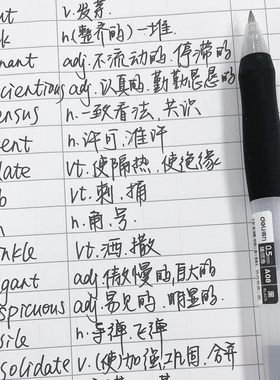 ut v.发芽
k n(整齐的)一堆
nant adj.不流动的.停滞的
scientious adj.认真的.勤勤恳恳的
ensus n.一致看法.共识
ent n.许可.准许
late vt.使隔热.使绝缘
b vt.刺.捅
n n.角.号
inkle vt.洒.撒
gant adj.傲慢的.自大的
spicuous adj.易见的.明显的
sile n.导弹.飞弹
solidate v.(使)加强.巩固.合并
deli得力 0.5mm A08 黑